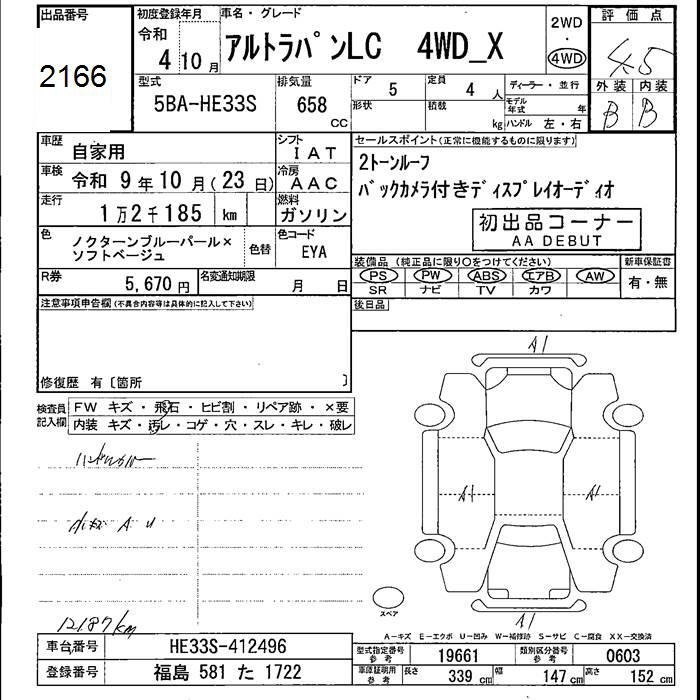 出品番号 2166
初度登録年月 令和 4 10 月
車名・グレード アルトラパンLC 4WD_X
2WD ・ 4WD
評価点 4.5
外装 B 内装 B
型式 5BA-HE33S
排気量 658 CC
ドア 5
定員 4 人
形状
積載 kg
ディーラー・並行
モデル年式 年
ハンドル 左・右
車歴 自家用
シフト IAT
車検 令和 9 年 10 月 ( 23 日)
冷房 AAC
走行 1万2千185 km
燃料 ガソリン
色 ノクターンブルーパール×
ソフトベージュ
色替
色コード EYA
R券 5,670 円
名変通知期限 月 日
セールスポイント(正常に機能するものに限ります)
2トーンルーフ
バックカメラ付きディスプレイオーディオ
初出品コーナー
AA DEBUT
装備品 (純正品に限り○をつけてください)
PS PW ABS エアB AW
SR ナビ TV カワ
新車保証書
有・無
後日品
注意事項申告欄(不具合内容等は具体的に記入して下さい)
修復歴 有〔箇所 〕
検査員記入欄
FW キズ・飛石・ヒビ割・リペア跡・×要
内装 キズ・汚レ・コゲ・穴・スレ・キレ・破レ
A1
A1
A1
A1
小キズ A U
12187km
スペア
A-キズ E-エクボ U-凹み W-補修跡 S-サビ C-腐食 XX-交換済
車台番号 HE33S-412496
登録番号 福島 581 た 1722
型式指定番号 参考 19661
類別区分番号 参考 0603
車庫証明用 参考 長さ 339 cm 幅 147 cm 高さ 152 cm